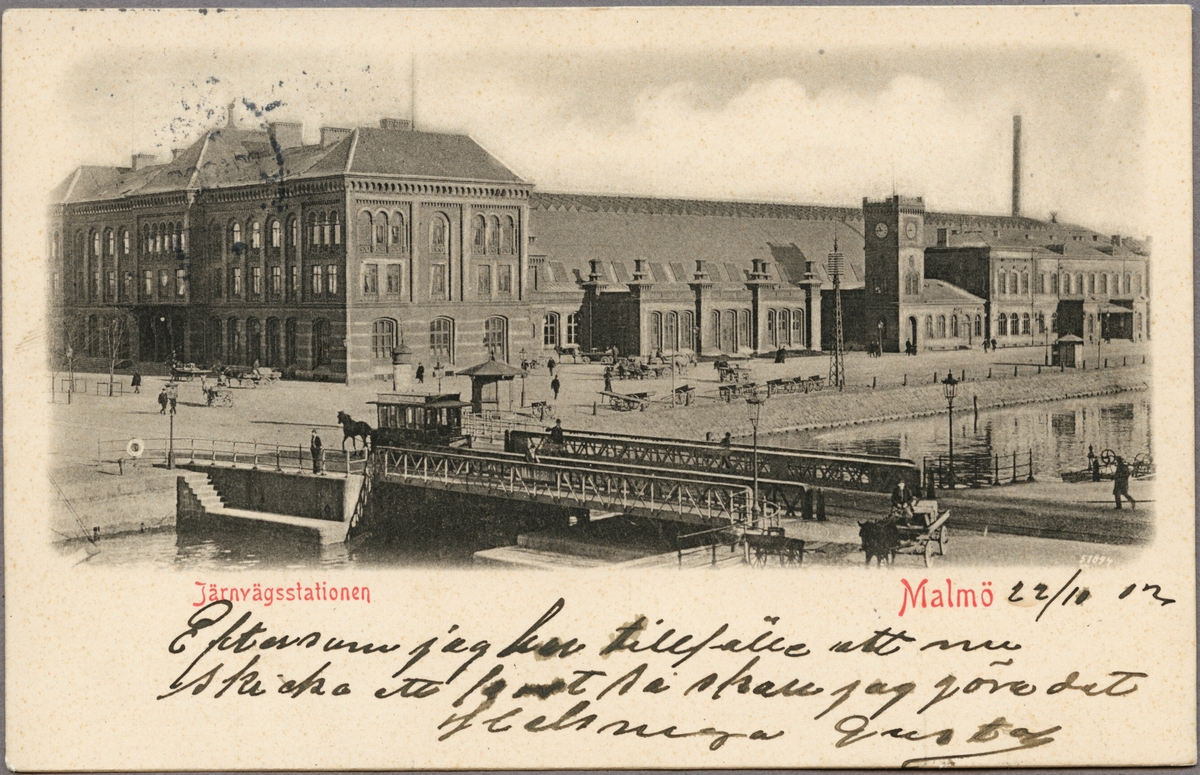 51894
Järnvägsstationen
Malmö 22/11 02
Eftersom jag har tillfälle att nu
skicka ett kort så skall jag göra det
Helsninga Gustaf